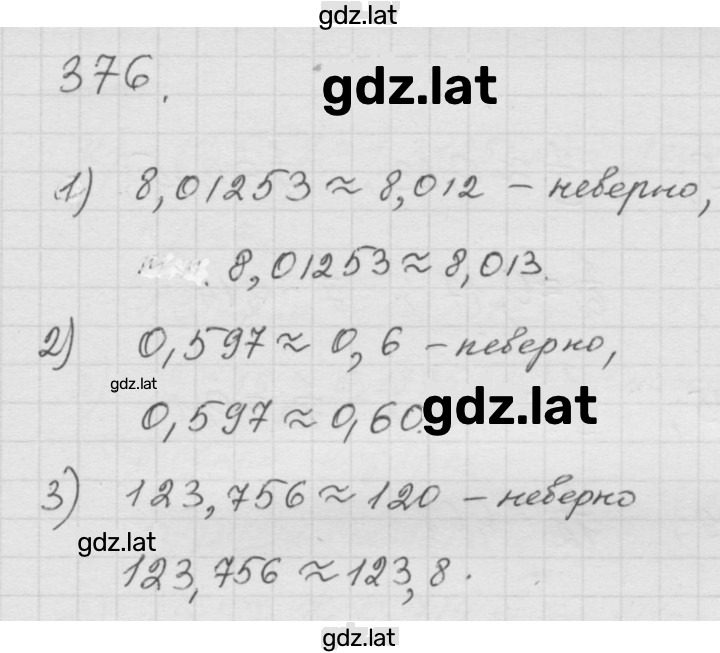 gdz.lat
376.
gdz.lat
1) 8,01253 ≈ 8,012 – неверно,
8,01253 ≈ 8,013.
2) 0,597 ≈ 0,6 – неверно,
gdz.lat
0,597 ≈ 0,60.
gdz.lat
3) 123,756 ≈ 120 – неверно
gdz.lat
123,756 ≈ 123,8.
gdz.lat